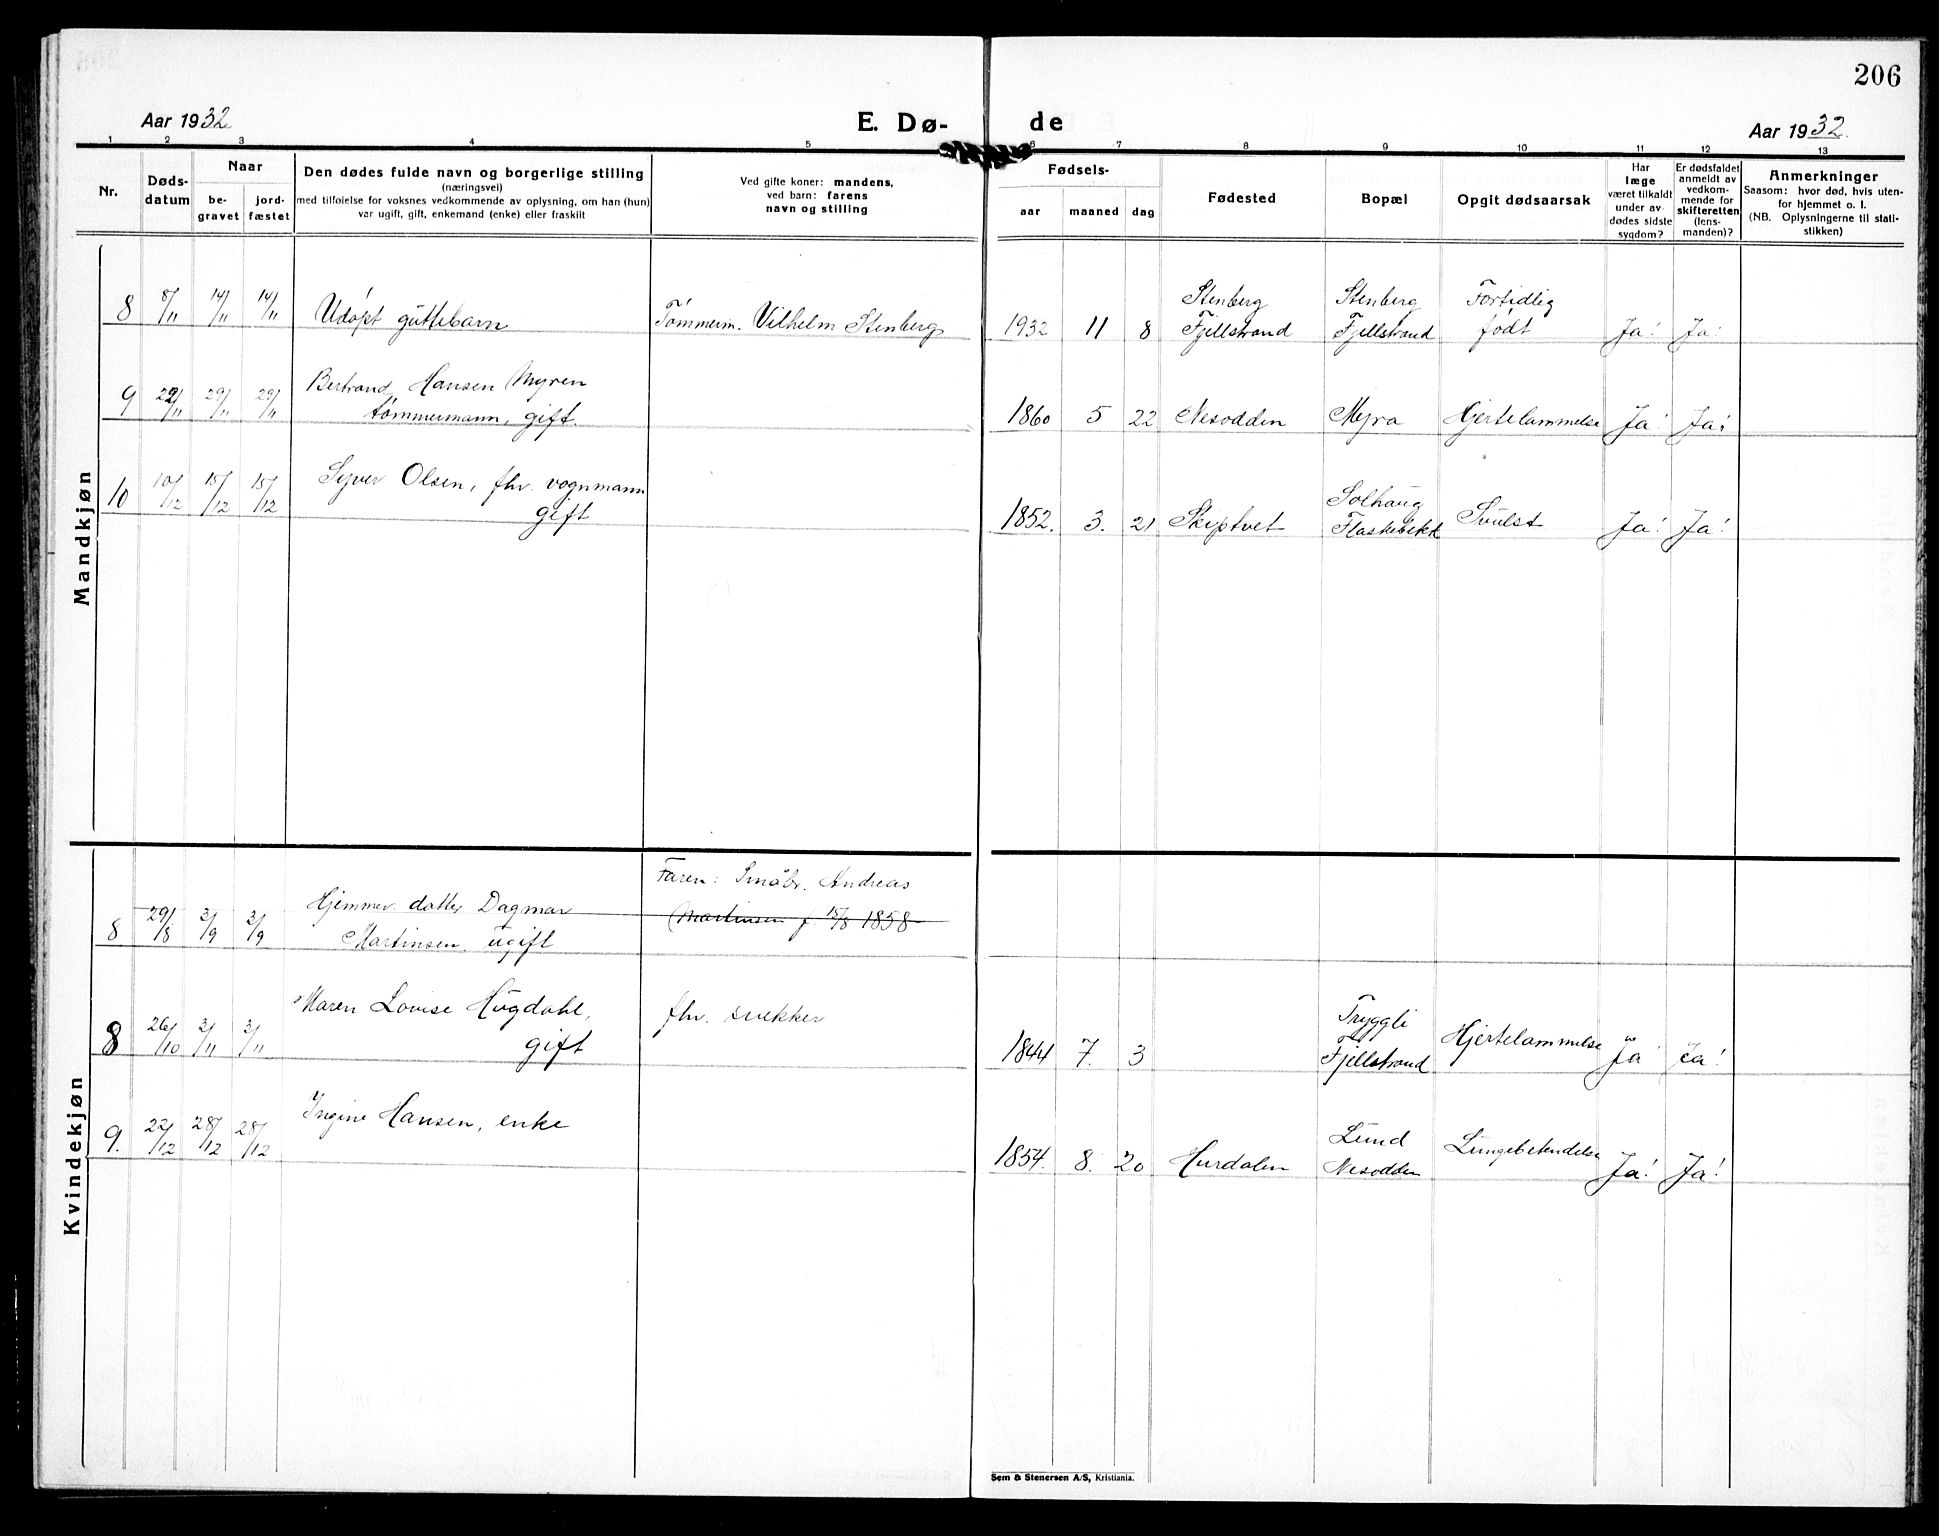 206
Aar 1932
E. Dø-
de
Aar 1932.
1 2 3 4 5 6 7 8 9 10 11 12 13
Nr.
Døds-
datum
Naar
be-
gravet
jord-
fæstet
Den dødes fulde navn og borgerlige stilling
(næringsvei)
med tilføielse for voksnes vedkommende av oplysning, om han (hun)
var ugift, gift, enkemand (enke) eller fraskilt
Ved gifte koner: mandens,
ved barn: farens
navn og stilling
Fødsels-
aar maaned dag
Fødested
Bopæl
Opgit dødsaarsak
Har
læge
været tilkaldt
under av-
dødes sidste
sygdom?
Er dødsfaldet
anmeldt av
vedkom-
mende for
skifteretten
(lens-
manden)?
Anmerkninger
Saasom: hvor død, hvis uten-
for hjemmet o. l.
(NB. Oplysningerne til stati-
stikken)
Mandkjøn
Stenberg Stenberg Fortidlig
8 8/11 14/11 14/11 Udøpt guttebarn Tømmerm. Vilhelm Stenberg 1932 11 8 Fjellstrand Fjellstrand født Ja! Ja!
Bertrand Hansen Myren
9 22/11 29/11 29/11 tømmermann, gift. 1860 5 22 Nesodden Myra Hjertelammelse Ja! Ja!
Syver Olsen, fhv. vognmann Solhaug
10 10/12 15/12 15/12 gift 1852. 3. 21 Skiptvet Flaskebekk Svulst Ja! Ja!
Kvindekjøn
Faren: Småbr. Andreas
Hjemmev. datter Dagmar Martinsen f. 15/8 1858
8 29/8 3/9 3/9 Martinsen ugift
Maren Lovise Hugdahl, fhv. snekker Tryggli
8 26/10 3/11 3/11 gift 1844 7. 3 Fjellstrand Hjertelammelse Ja! Ja!
Ingine Hansen, enke Lund
9. 22/12 28/12 28/12 1854. 8. 20 Hurdalen Nesodden Lungebetendelse Ja! Ja!
Sem & Stenersen A/S, Kristiania.